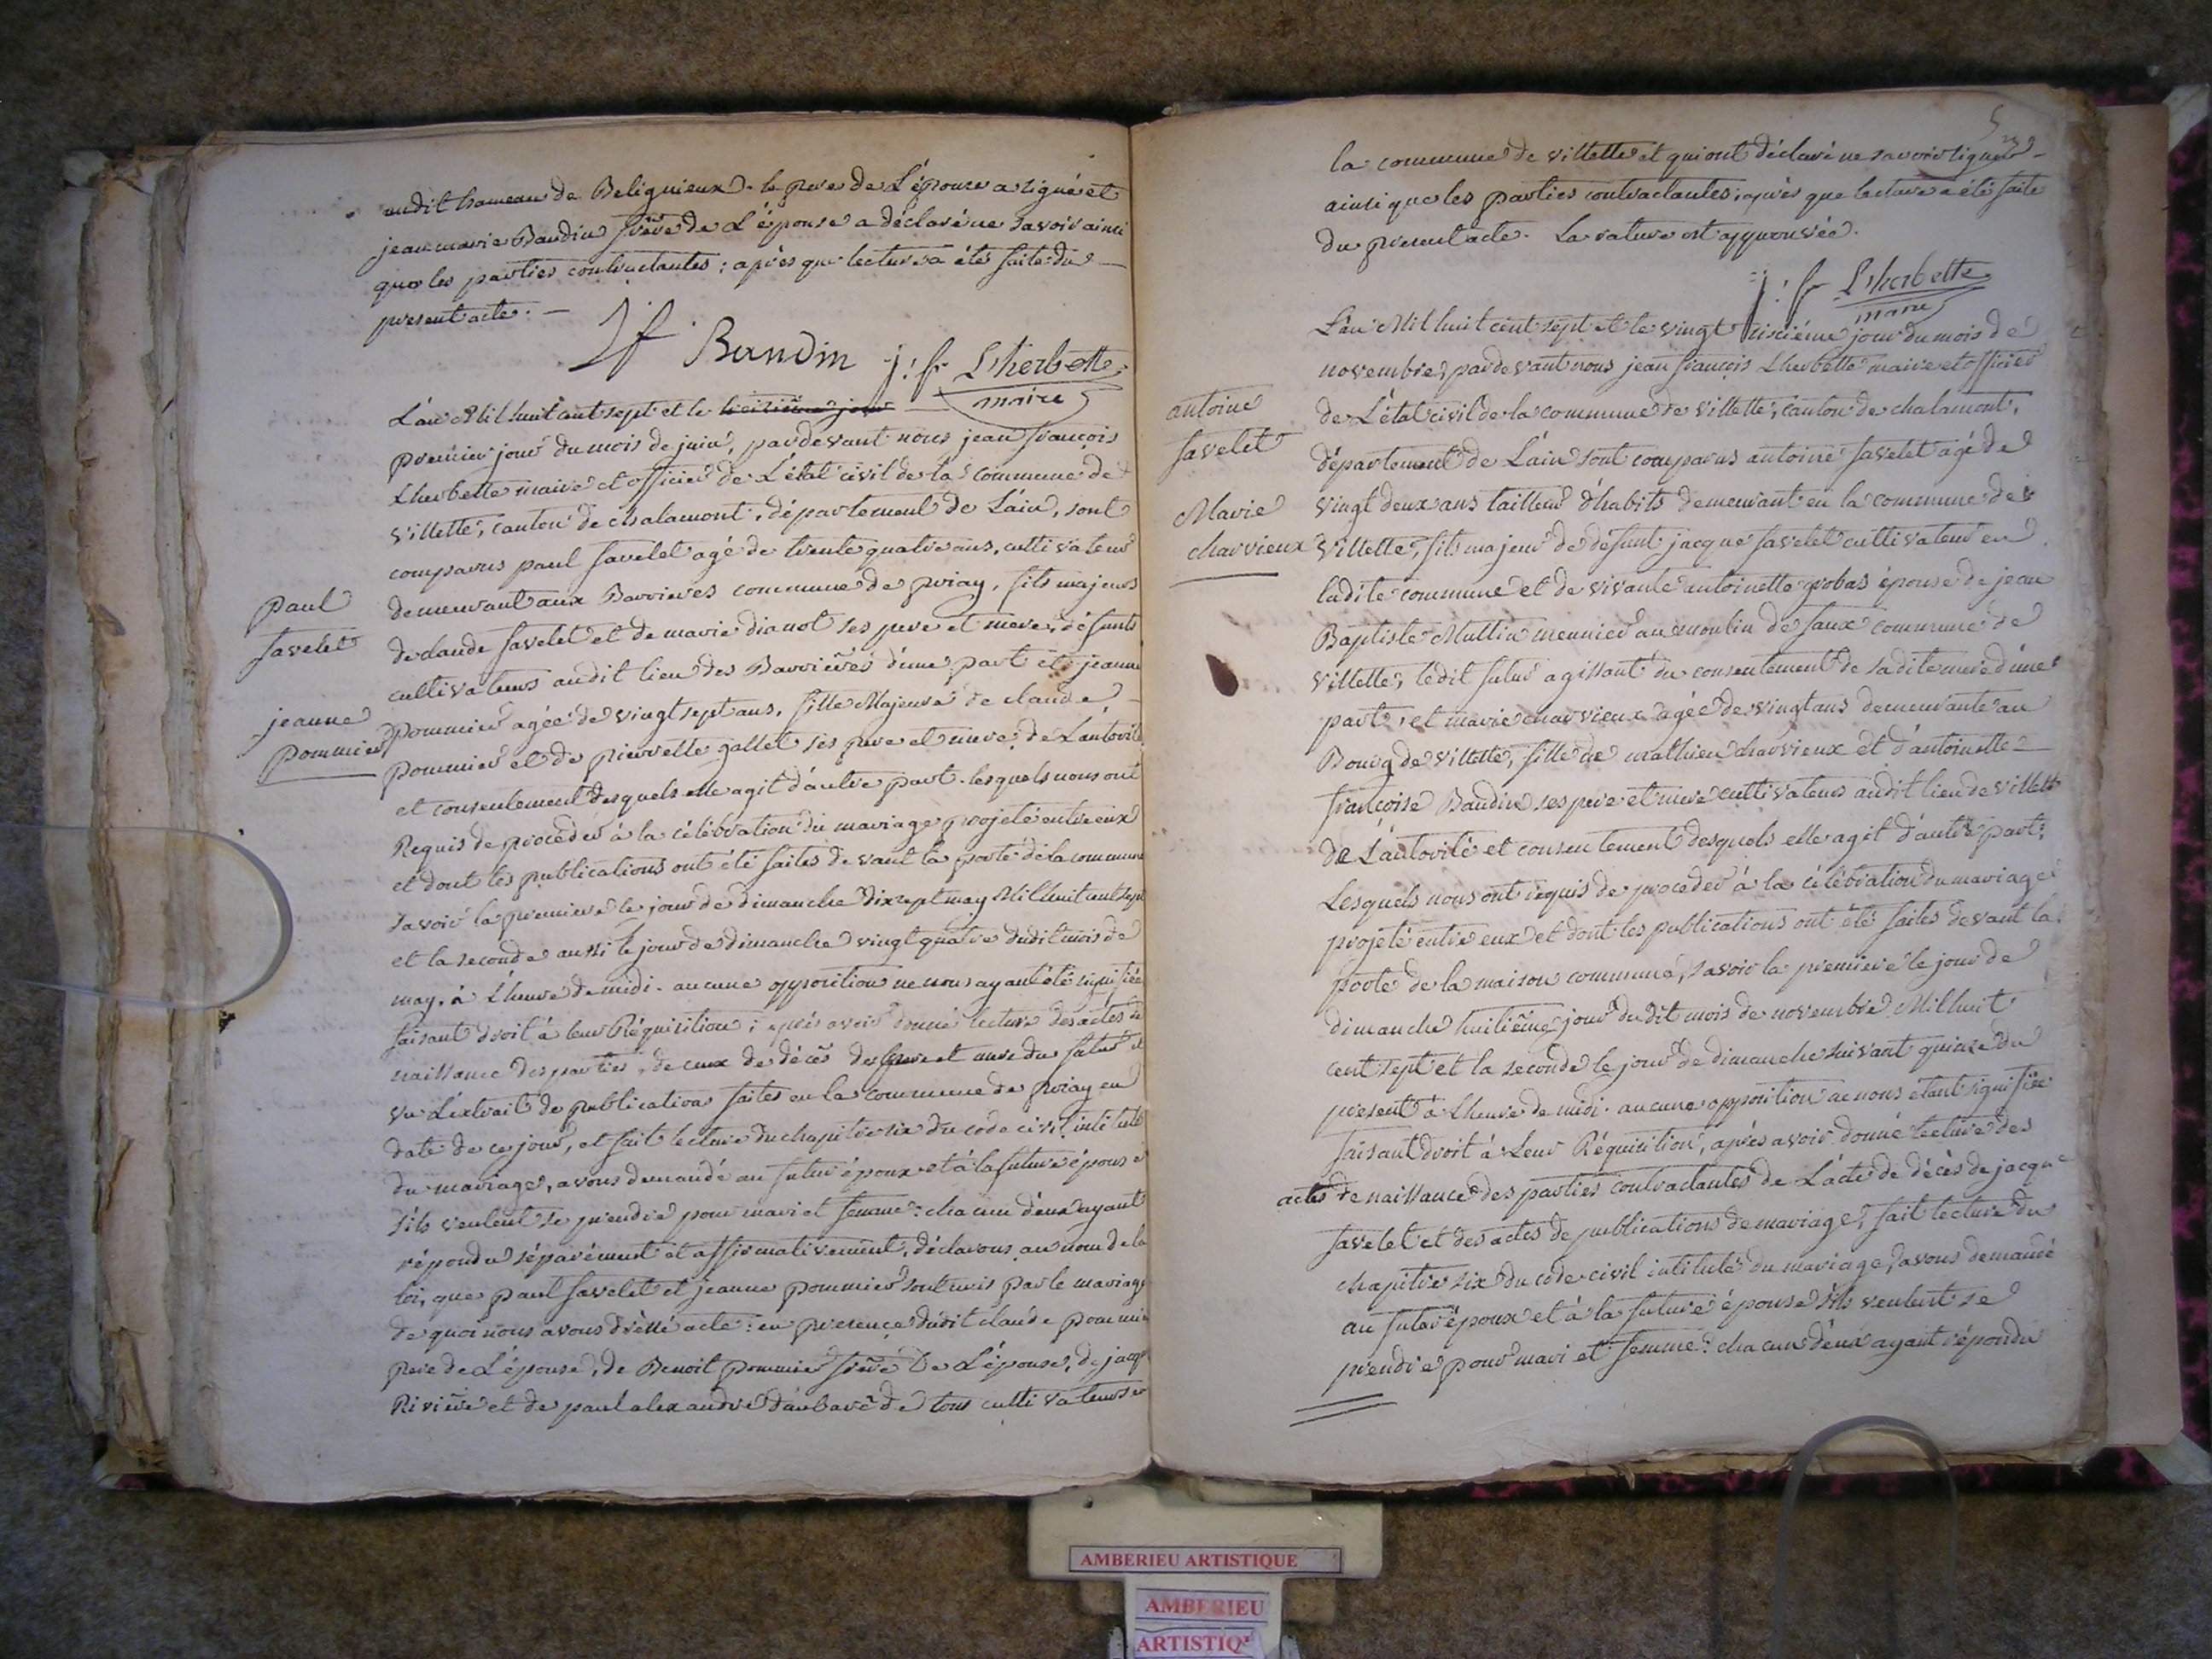 audit hameau de Beligneux. le pere de L'épouse a signé et
jean marie Baudin frère de L'épouse a déclaré ne savoir ainsi
que les parties contractantes ; après que lecture a été faite du
present acte. —
Jf Baudin j: fr Lherbette
maire
L'an Mil huit cent sept et le troisième jour
premier jour du mois de juin, pardevant nous jean françois
Lherbette maire et officier de L'état civil de la commune de
villette, canton de chalamont, département de L'ain, sont
comparus paul favelet agé de trente quatre ans, cultivateur
Paul
favelet
demeurant aux Barrieres commune de priay, fils majeur
de claude favelet et de marie dianot ses pere et mere, défunts
cultivateurs audit lieu des Barrières d'une part et jeanne
jeanne
pommier
pommier agée de vingt sept ans, fille Majeure de claude
pommier et de pierrette gallet ses pere et mere, de L'autorité
et consentement desquels elle agit d'autre part. lesquels nous ont
Requis de procéder à la célébration du mariage projeté entre eux
et dont les publications ont été faites devant la porte de la commune
savoir la premiere le jour de dimanche dix sept may Mil huit cent sept
et la seconde aussi le jour de dimanche vingt quatre dudit mois de
may, à L'heure de midi. aucune opposition ne nous ayant été signifiée
faisant droit à leur Réquisition ; après avoir donné lecture des actes de
naissance des parties, de ceux de décès des pere et mere du futur et
vu L'extrait de publication faites en la commune de priay en
date de ce jour, et fait lecture du chapitre six du code civil intitulé
du mariage, avons demandé au futur époux et à la future épouse
s'ils veulent se prendre pour mari et femme : chacun d'eux ayant
répondu séparément et affirmativement, déclarons au nom de la
loi, que paul favelet et jeanne pommier sont unis par le mariage
de quoi nous avons dressé acte : en presence dudit claude pommier
pere de L'épouse, de Benoit pommier frère de L'épouse, de jacque
Rivière et de paul alexandre tous cultivateurs en
5
la commune de villette et qui ont déclaré ne savoir signer
ainsi que les parties contractantes, après que lecture a été faite
du present acte. La rature est approuvée.
j: fr Lherbette
maire
L'an Mil huit cent sept et le vingt jour du mois de
novembre, pardevant nous jean françois Lherbette maire et officier
antoine
favelet
de L'état civil de la commune de villette, canton de chalamont,
département de L'ain sont comparus antoine favelet agé de
Marie
charvieux
vingt deux ans tailleur d'habits demeurant en la commune de
villette, fils majeur de défunt jacque favelet cultivateur en
ladite commune et de vivante antoinette probas épouse de jean
Baptiste Muttin meunier au moulin de faux commune de
villette, ledit futur agissant du consentement de sadite mere d'une
part, et marie charvieux agée de vingt ans demeurante au
Bourg de villette, fille de mathieu charvieux et d'antoinette
françoise Baudin ses pere et mere cultivateurs audit lieu de villette
de L'autorité et consentement desquels elle agit d'autre part,
Lesquels nous ont requis de proceder à la célébration du mariage
projeté entre eux et dont les publications ont été faites devant la
porte de la maison commune, savoir la premiere le jour de
dimanche huitième jour dudit mois de novembre Mil huit
cent sept et la seconde le jour de dimanche suivant quinze du
present à L'heure de midi. aucune opposition ne nous étant signifiée
faisant droit à Leur Réquisition, après avoir donné lecture des
actes de naissance des parties contractantes de L'acte de décès de jacque
favelet et des actes de publications de mariage, fait lecture du
chapitre six du code civil intitulé du mariage, avons demandé
au futur époux et à la future épouse s'ils veulent se
prendre pour mari et femme : chacun d'eux ayant répondu
AMBERIEU ARTISTIQUE
AMBERIEU
ARTISTIQ